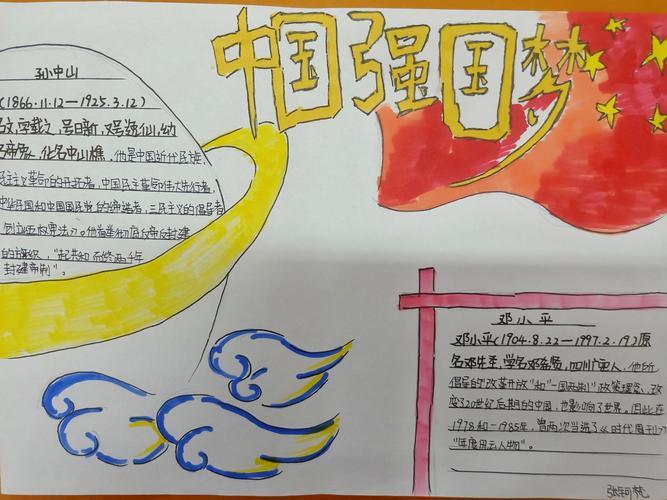 中国强国梦
孙中山
(1866.11.12—1925.3.12)
名文,字载之,号日新,又号逸仙,幼
名帝象,化名中山樵,他是中国近代民族
民主主义革命的开拓者,中国民主革命伟大先行者,
中华民国和中国国民党的缔造者,三民主义的倡导者
创立五权宪法。他首举彻底反帝反封建
的旗帜,"起共和而终两千年
封建帝制"。
邓小平
邓小平(1904.8.22—1997.2.19)原
名邓先圣,学名邓希贤,四川广安人,他所
倡导的"改革开放"和"一国两制"政策理念,改
变了20世纪后期的中国,也影响了世界。因此在
1978和一1985年,曾两次当选了《时代周刊》
"年度风云人物"。